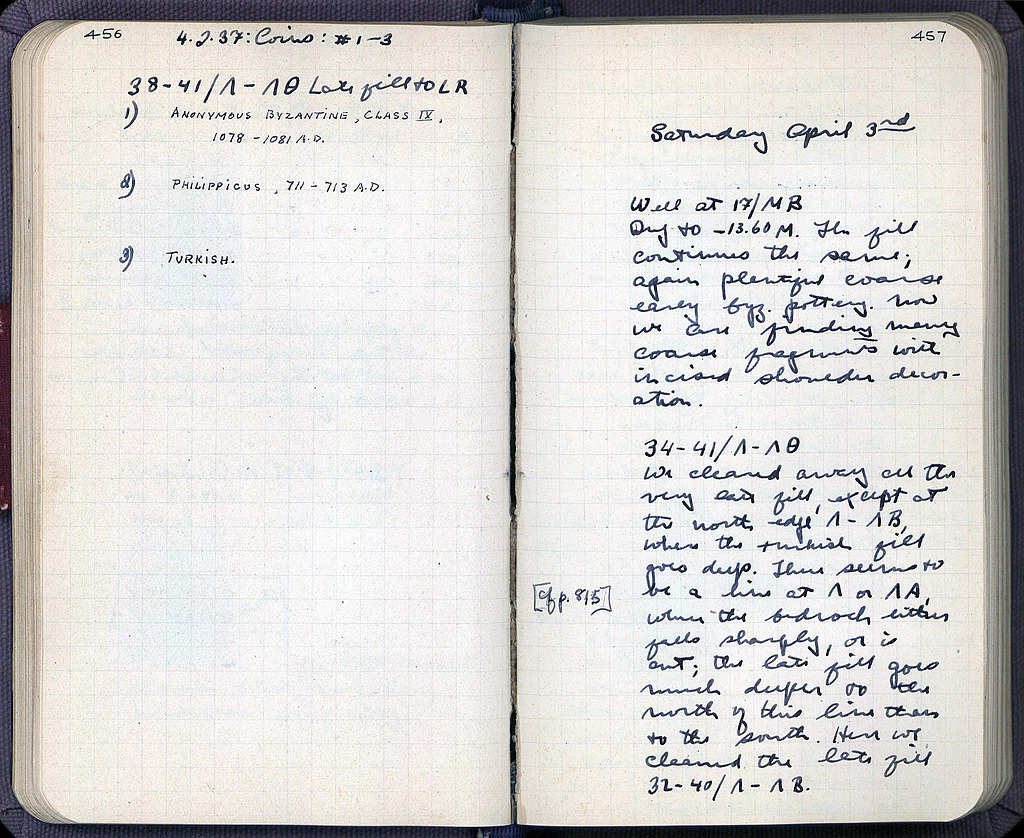 456
4.2.37: Coins: #1-3
38-41/Λ-ΛΘ Late fill to LR
1) ANONYMOUS BYZANTINE, CLASS IV,
1078-1081 A.D.
2) PHILIPPICUS, 711-713 A.D.
3) TURKISH.
457
Saturday April 3rd
Well at 17/ΜΒ
Dug to -13.60 M. The fill
continues the same;
again plentiful coarse
early byz. pottery. Now
we are finding many
coarse fragments with
incised shoulder decor-
ation.
34-41/Λ-ΛΘ
We cleaned away all the
very late fill, except at
the north edge Λ-ΛΒ,
where the turkish fill
goes deep. There seems to
[cf p. 815]
be a line at Λ or ΛΑ,
where the bedrock either
falls sharply, or is
cut; the late fill goes
much deeper to the
north of this line than
to the south. Here we
cleaned the late fill
32-40/Λ-ΛΒ.